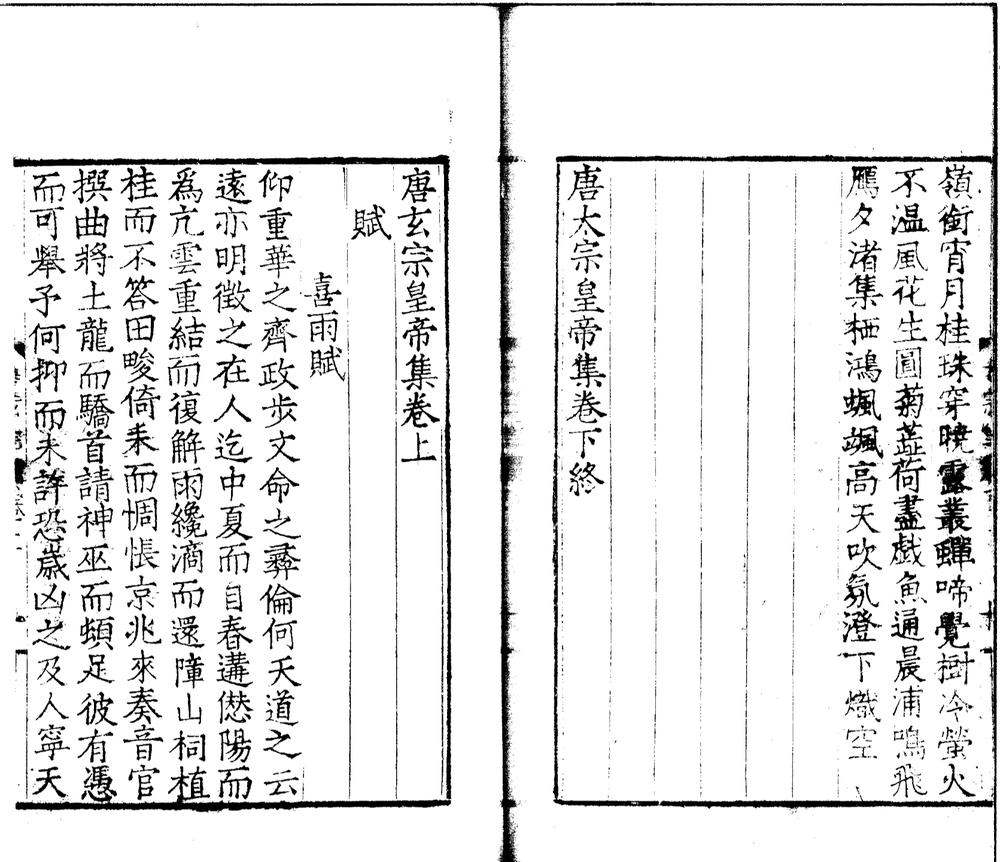 嶺銜宵月桂珠穿曉露叢蟬啼覺樹冷螢火
不温風花生圓菊蕋荷盡戲魚通晨浦鳴飛
鴈夕渚集栖鴻颯颯高天吹氛澄下熾空
唐太宗皇帝集卷下終
唐玄宗皇帝集卷上
賦
喜雨賦
仰重華之齊政步文命之彞倫何天道之云
遠亦明徵之在人迄中夏而自春遘愆陽而
爲亢雲重結而復解雨纔滴而還障山祠植
桂而不答田畯倚耒而惆悵京兆來奏音官
撰曲將土龍而驕首請神巫而頓足彼有憑
而可舉予何抑而未許恐歲凶之及人寧天